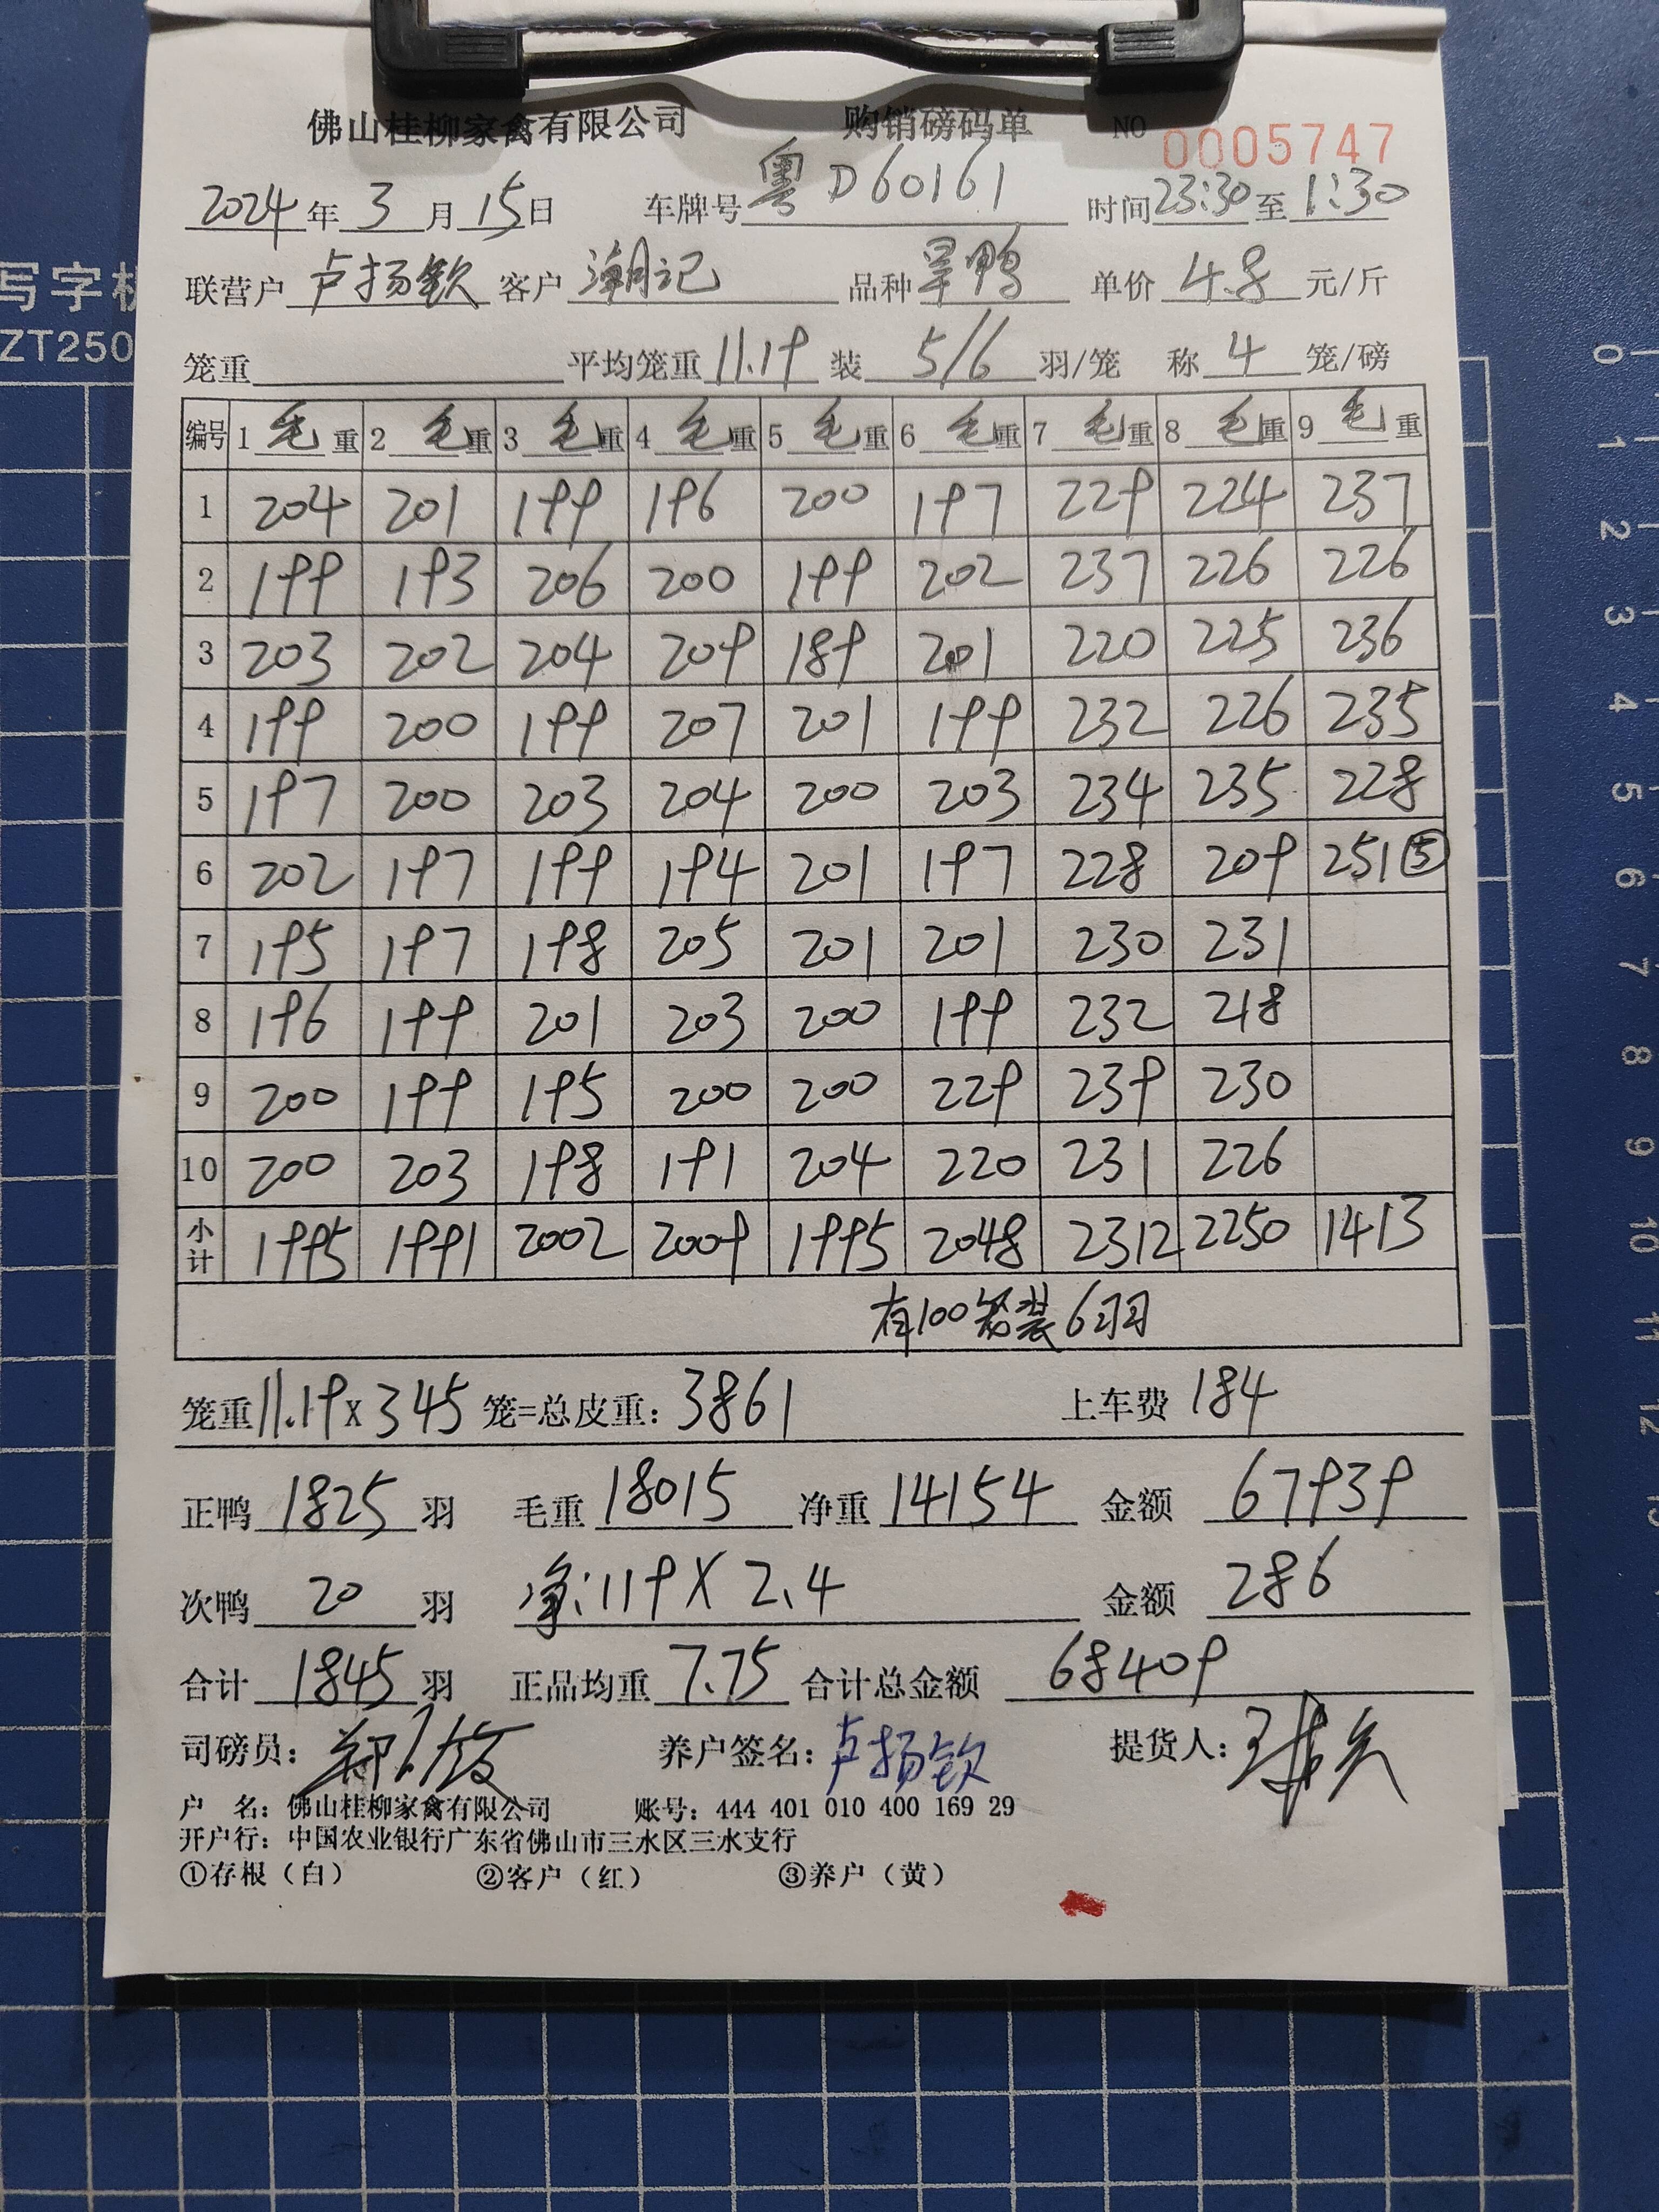 佛山桂柳家禽有限公司 购销磅码单 NO 0005747
2024年3月15日 车牌号 粤D60161 时间 23:30 至 1:30
联营户 卢扬钦 客户 潮记 品种 旱鸭 单价 4.8 元/斤
笼重 平均笼重 11.19 装 5/6 羽/笼 称 4 笼/磅
编号 1 毛重 2 毛重 3 毛重 4 毛重 5 毛重 6 毛重 7 毛重 8 毛重 9 毛重
1 204 201 199 196 200 197 229 224 237
2 199 193 206 200 199 202 237 226 226
3 203 202 204 209 189 201 220 225 236
4 199 200 199 207 201 199 232 226 235
5 197 200 203 204 200 203 234 235 228
6 202 197 199 194 201 197 228 209 251⑤
7 195 197 198 205 201 201 230 231
8 196 199 201 203 200 199 232 218
9 200 199 195 200 200 229 239 230
10 200 203 198 191 204 220 231 226
小计 1995 1991 2002 2009 1995 2048 2312 2250 1413
有100笼装6羽
笼重 11.19 x 345 笼=总皮重: 3861 上车费 184
正鸭 1825 羽 毛重 18015 净重 14154 金额 67939
次鸭 20 羽 净:119 X 2.4 金额 286
合计 1845 羽 正品均重 7.75 合计总金额 68409
司磅员: 养户签名: 卢扬钦 提货人:
户 名: 佛山桂柳家禽有限公司 账号: 444 401 010 400 169 29
开户行: 中国农业银行广东省佛山市三水区三水支行
①存根(白) ②客户(红) ③养户(黄)
写字板
ZT250
0
1
2
3
4
5
6
7
8
9
10
11
12
13